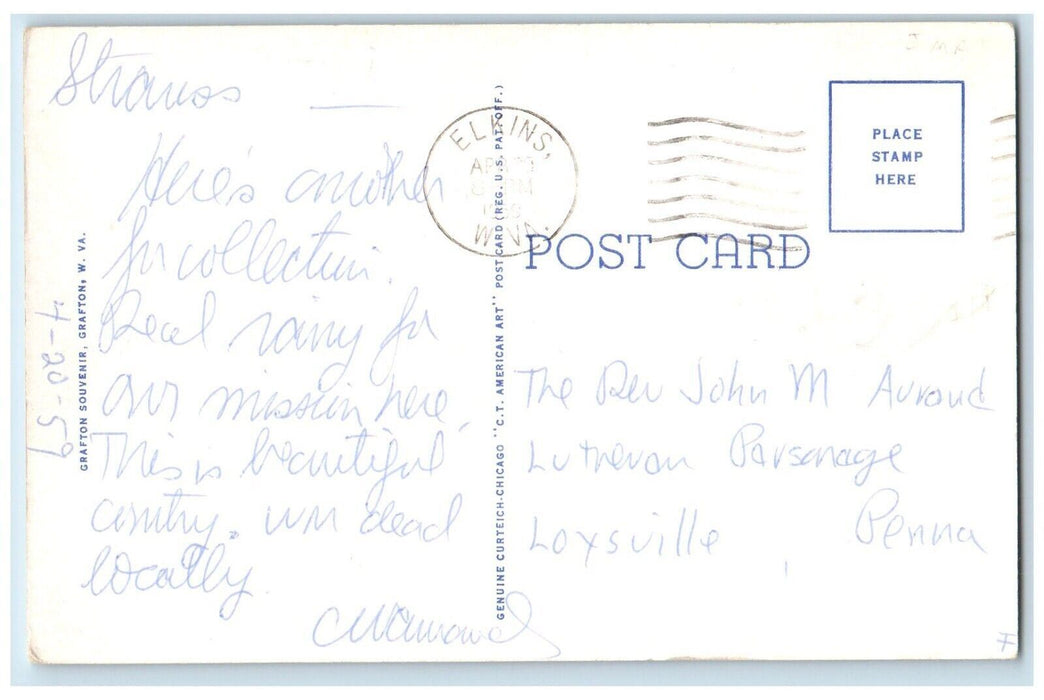 Strauss
Here's another
for collection.
Real rainy for
our mission here.
This is beautiful
country. UMW dead
locally.
4-20-59
GRAFTON SOUVENIR, GRAFTON, W. VA.
GENUINE CURTEICH-CHICAGO "C.T. AMERICAN ART" POST CARD (REG. U.S. PAT. OFF.)
ELKINS,
W. VA.
PLACE
STAMP
HERE
POST CARD
The Rev John M Aurand
Lutheran Parsonage
Loysville, Penna